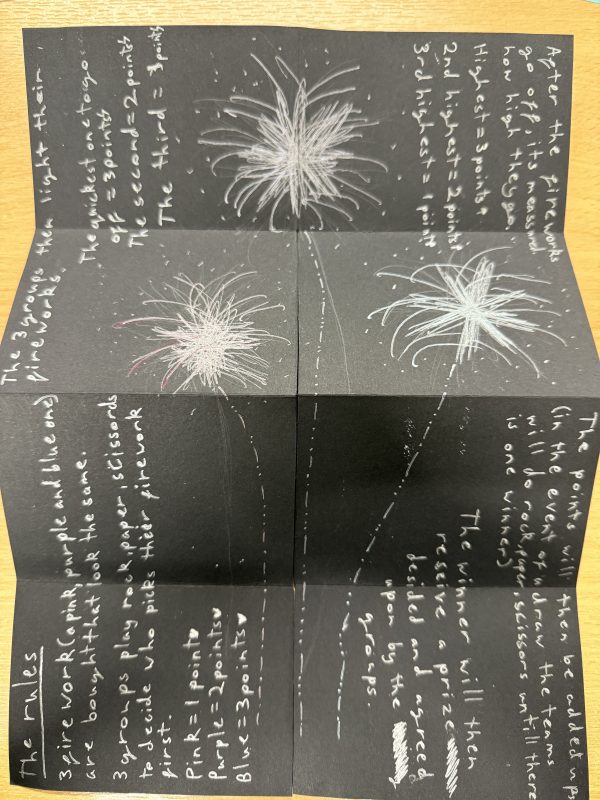 The rules
3 firework (a pink, purple and blue one)
are bought that look the same.
3 groups play rock paper scissords
to decide who picks their firework
first.
Pink = 1 point
Purple = 2 points
Blue = 3 points
The 3 groups then light their
fireworks.
The quickest one to go
off = 3 points
The second = 2 points
The third = 3 points
After the fireworks
go off, its measured
how high they go.
Highest = 3 points
2nd highest = 2 points
3rd highest = 1 point
The points will then be added up
(in the event of a draw the teams
will do rock, paper, scissors untill there
is one winner)
The winner will then
reseve a prize
decided and agreed
upon by the
groups.